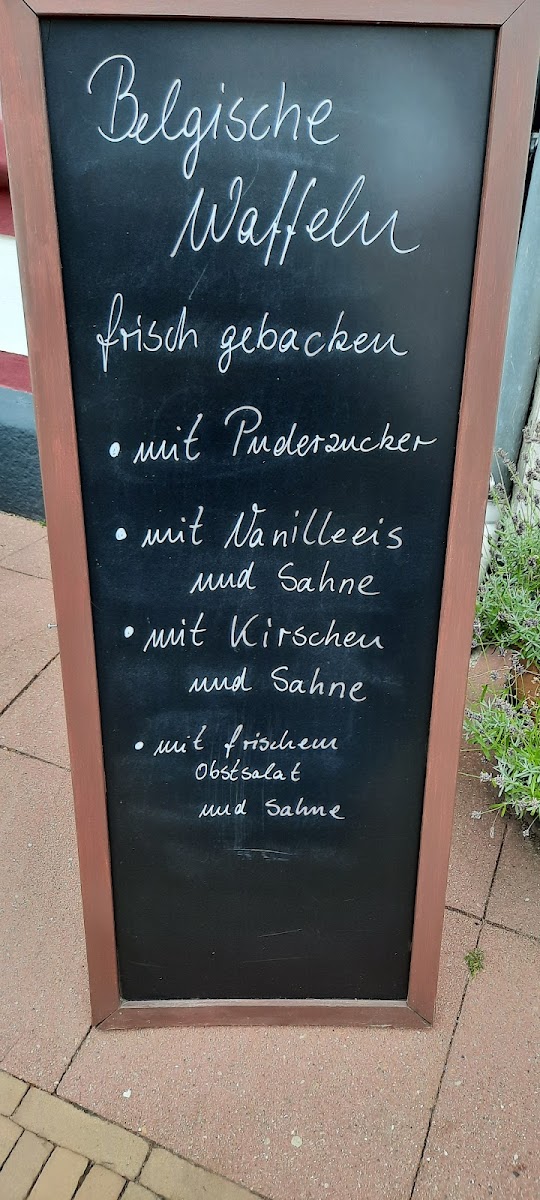 Belgische
Waffeln
frisch gebacken
• mit Puderzucker
• mit Vanilleeis
und Sahne
• mit Kirschen
und Sahne
• mit frischem
Obstsalat
und Sahne